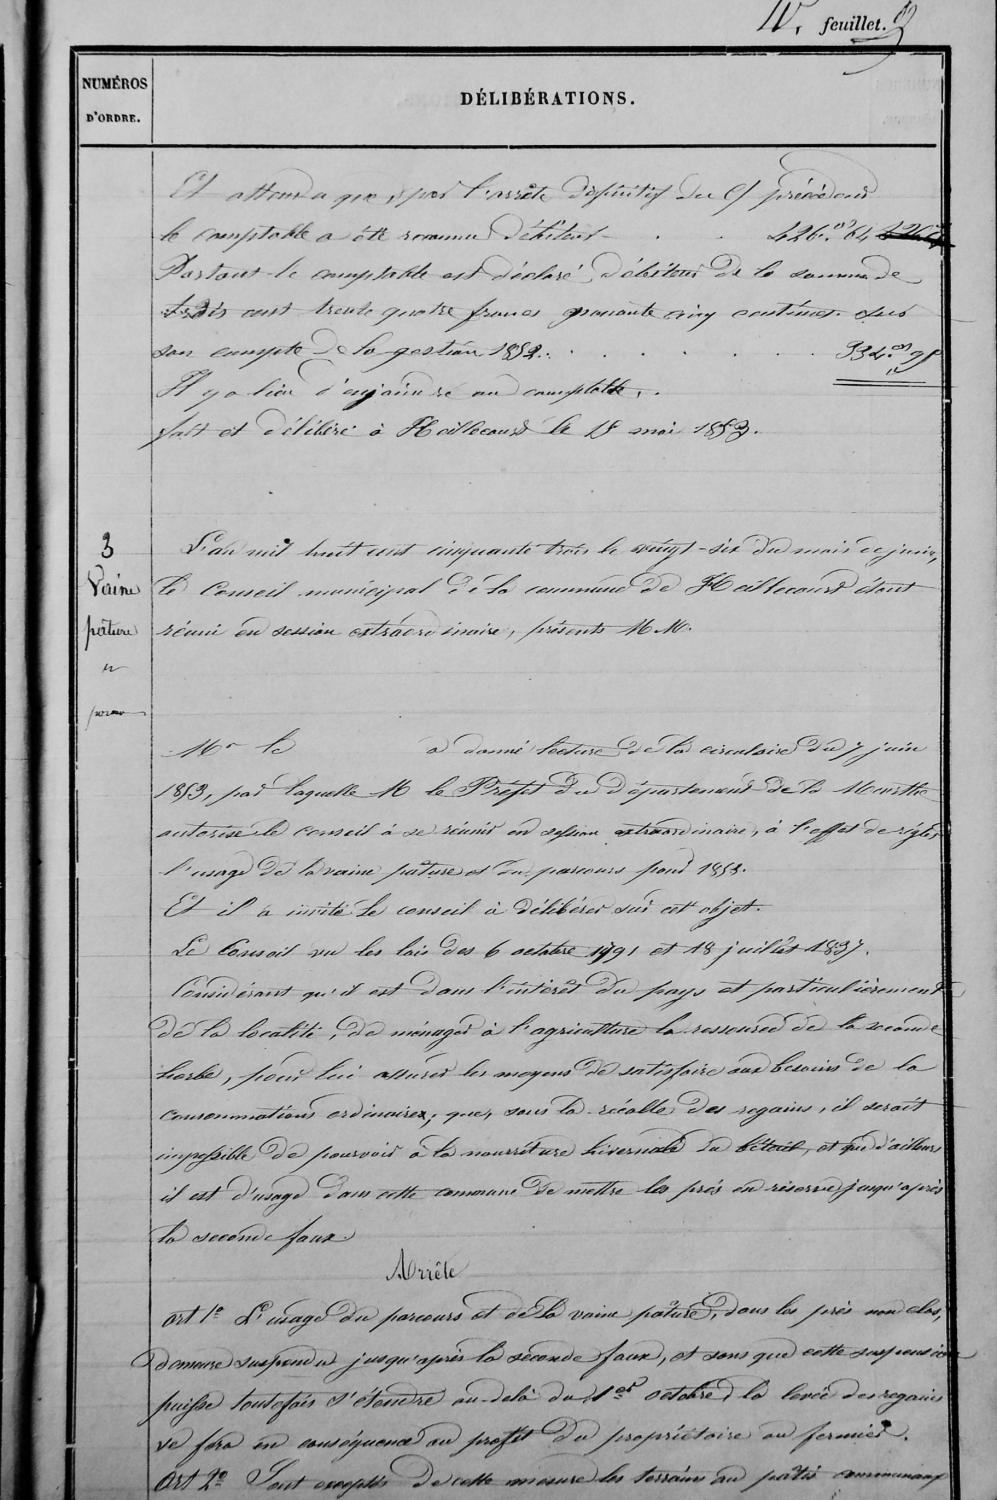 IV. feuillet. 3
NUMÉROS
D'ORDRE.
DÉLIBÉRATIONS.
Et attendu que, par l'arrêté définitif du précédent
le comptable a été reconnu débiteur . . 426. 64
Partant le comptable est déclaré débiteur de la somme de
trois cent trente quatre francs centimes sur
son compte de la gestion 1852. . . . . . . 334.
Il y a lieu d'enjoindre au comptable.
fait et délibéré à Heillecourt le 15 mai 1853.
3
Vaine
pâture
et
parcours
L'an mil huit cent cinquante trois le vingt-six du mois de juin,
le Conseil municipal de la commune de Heillecourt étant
réuni en session extraordinaire, présents M M.
Mr le a donné lecture de la circulaire du 7 juin
1853, par laquelle M le Préfet du département de la Meurthe
autorise le conseil à se réunir en session extraordinaire, à l'effet de régler
l'usage de la vaine pâture et du parcours pour 1853.
Et il a invité le conseil à délibérer sur cet objet.
Le Conseil vu les lois des 6 octobre 1791 et 18 juillet 1837.
Considérant qu'il est dans l'intérêt du pays et particulièrement
de la localité, de ménager à l'agriculture la ressource de la seconde
herbe, pour lui assurer les moyens de satisfaire aux besoins de la
consommations ordinaires, que, sans la récolte des regains, il serait
impossible de pourvoir à la nourriture hivernale du bétail, et que d'ailleurs
il est d'usage dans cette commune de mettre les prés en réserve jusqu'après
la seconde faux.
Arrête
art 1º L'usage du parcours et de la vaine pâture, dans les prés non clos,
demeure suspendu jusqu'après la seconde faux, et sans que cette suspension
puisse toutefois s'étendre au-delà du 1er octobre, la levée des regains
se fera en conséquence au profit du propriétaire ou fermier.
Art 2º Sont exceptés de cette mesure les terrains au pâtis communaux